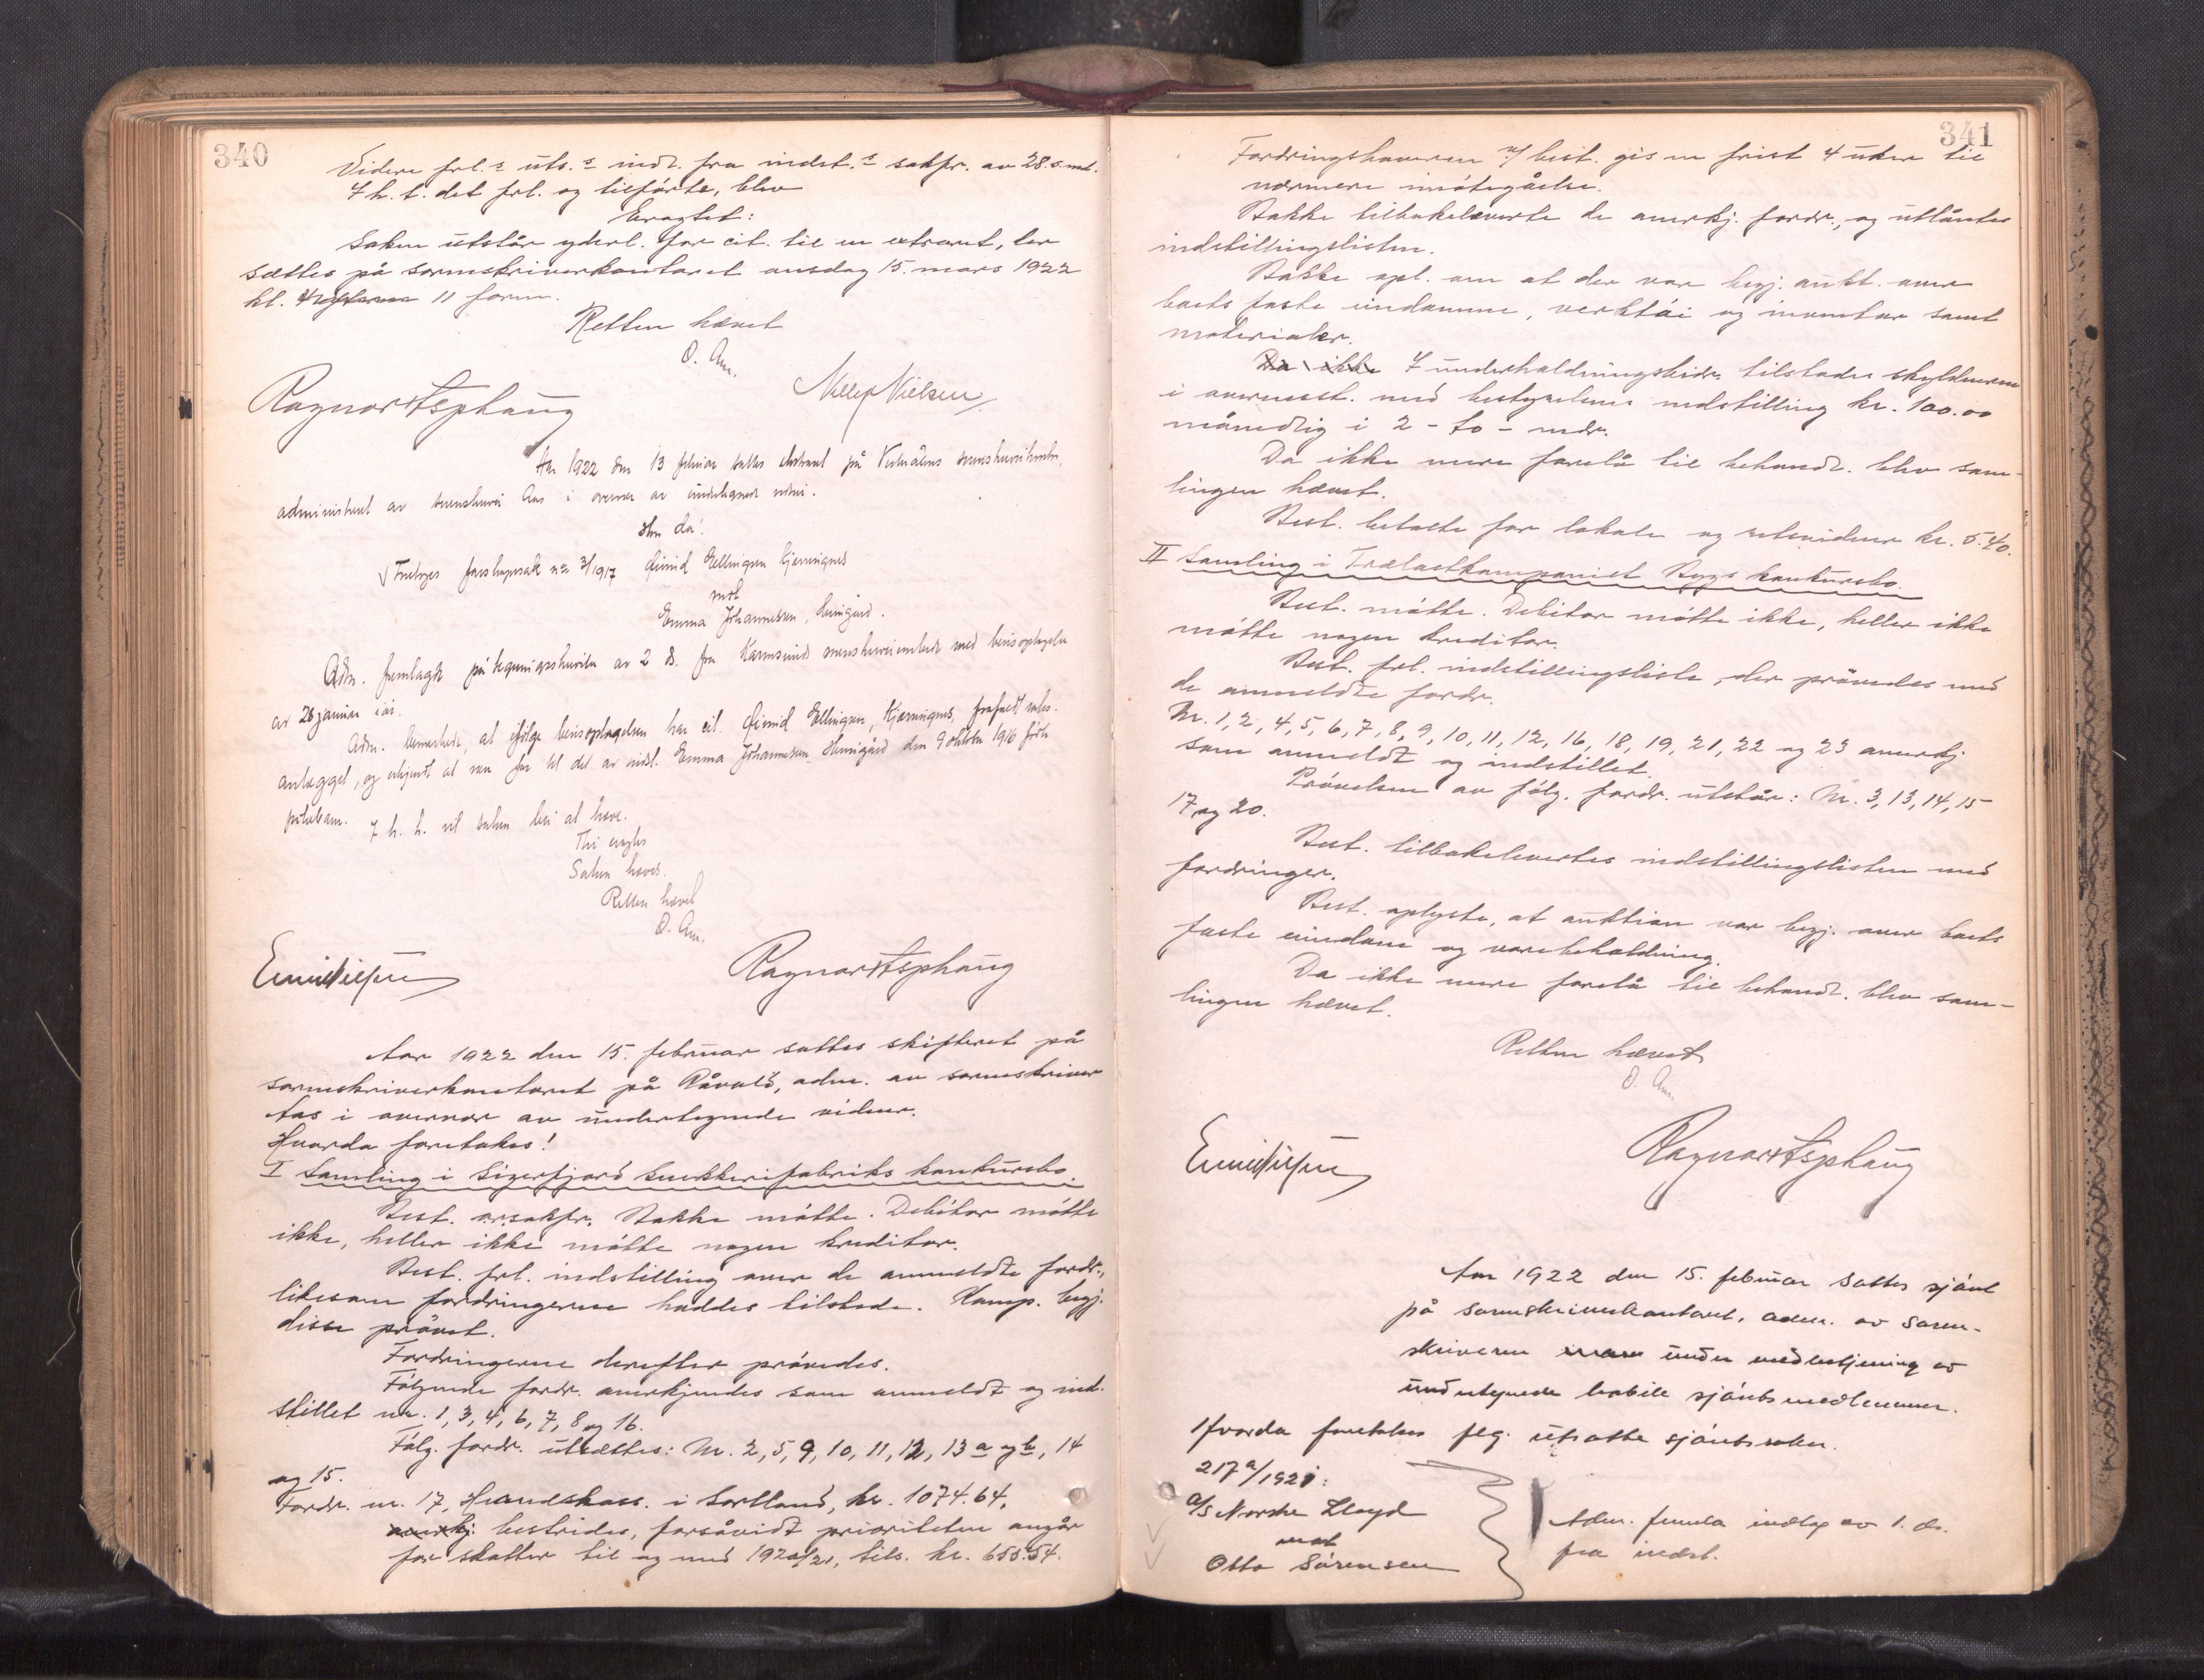 340
Videre frl. s uts. s indl. fra indst. s sakfr. av 28. s.md.
T h. t. det frl. og tilførte, blev
Eragtet:
Saken utstår yderl. for cit. til en extraret, der
sættes på sorenskriverkontoret onsdag 15. mars 1922
kl. 11 form.
Retten hævet
O. Aas.
Ragnar Asphaug
Nielsen
Aar 1922 den 13 februar sattes ekstraret på Vesterålens sorenskriverkontor,
administrert av sorenskriver Aas i overvær av undertegnede vidner.
Hvor da:
Foretoges farskapssak nr 3/1917 Øivind Ellingsen Kjerringnes
mot
Emma Johannesen, Hemigård.
Adm. fremlagde påtegningsskrivelse av 2 ds. fra Karmsund sorenskriverembede med bevisoptagelse
av 26 januar i år.
Adm. bemerket, at ifølge bevisoptagelsen har cit. Øivind Ellingsen, Kjerringnes, frafaldt saks-
anlægget, og erkjendt at være far til det av indst. Emma Johannesen Hemigård den 9 oktober 1916 fødte
pikebarn. T h. h. vil saken bli at hæve.
Thi eragtes
Saken hæves.
Retten hævet
O. Aas.
Emil Nielsen
Ragnar Asphaug
Aar 1922 den 15. februar sattes skifteret på
sorenskriverkontoret på Råvold, adm. av sorenskriver
Aas i overvær av undertegnede vidner.
Hvorda foretokes!
I Samling i Sigerfjord Snekkerifabriks konkursbo.
Best. o.r.sakfr. Stakke møtte. Debitor møtte
ikke, heller ikke møtte nogen kreditor.
Best. frl. indstilling over de anmeldte fordr.,
likesom fordringerne haddes tilstede. Komp. begj.
disse prøvet.
Fordringerne derefter prøvedes.
Følgende fordr. anerkjendes som anmeldt og ind-
stillet nr. 1, 3, 4, 6, 7, 8 og 16.
Følg. fordr. utsættes: Nr. 2, 5, 9, 10, 11, 12, 13 a og b, 14
og 15.
Fordr. nr. 17, Herredskass. i Sortland, kr. 1074.64,
anerkj. bestrides, forsåvidt prioriteten angår
for skatter til og med 1920/21, tils. kr. 655.54.
341
Fordringshaveren v/ best. gis en frist 4 uker til
nærmere imøtegåelse.
Stakke tilbakeleverte de anerkj. fordr., og utlåntes
indstillingslisten.
Stakke opl. om at der var begj. aukt. over
boets faste eiendomme, verktøi og inventar samt
materialer.
Da ikke T underholdningsbidr. tilstodes skyldneren
i overensst. med bestyrelsens indstilling kr. 100.00
månedlig i 2 - to - mdr.
Da ikke mere forelå til behandl. blev sam-
lingen hævet.
Best. betalte for lokale og retsvidner kr. 5.40.
II Samling i Trælastkompaniet Byggs konkursbo.
Best. møtte. Debitor møtte ikke, heller ikke
møtte nogen kreditor.
Best. frl. indstillingsliste, der prøvedes med
de anmeldte fordr.
Nr. 1, 2, 4, 5, 6, 7, 8, 9, 10, 11, 12, 16, 18, 19, 21, 22 og 23 anerkj.
som anmeldt og indstillet.
Prøvelsen av følg. fordr. utstår: Nr. 3, 13, 14, 15
17 og 20.
Best. tilbakelevertes indstillingslisten med
fordringer.
Best. oplyste, at auktion var begj. over boets
faste eiendom og varebeholdning.
Da ikke mere forelå til behandl. blev sam-
lingen hævet.
Retten hævet
O. Aas.
Emil Nielsen
Ragnar Asphaug
Aar 1922 den 15. februar sattes sjøret
på sorenskriverkontoret, adm. av soren-
skriveren under medbetjening av
undertegnede habile sjøretsmedlemmer.
Hvorda foretokes flg. utsatte sjøretssaker.
217 a/1921:
A/S Norske Lloyd
mot
Otto Sørensen
Adm. fremla indlæg av 1. ds.
fra indst.